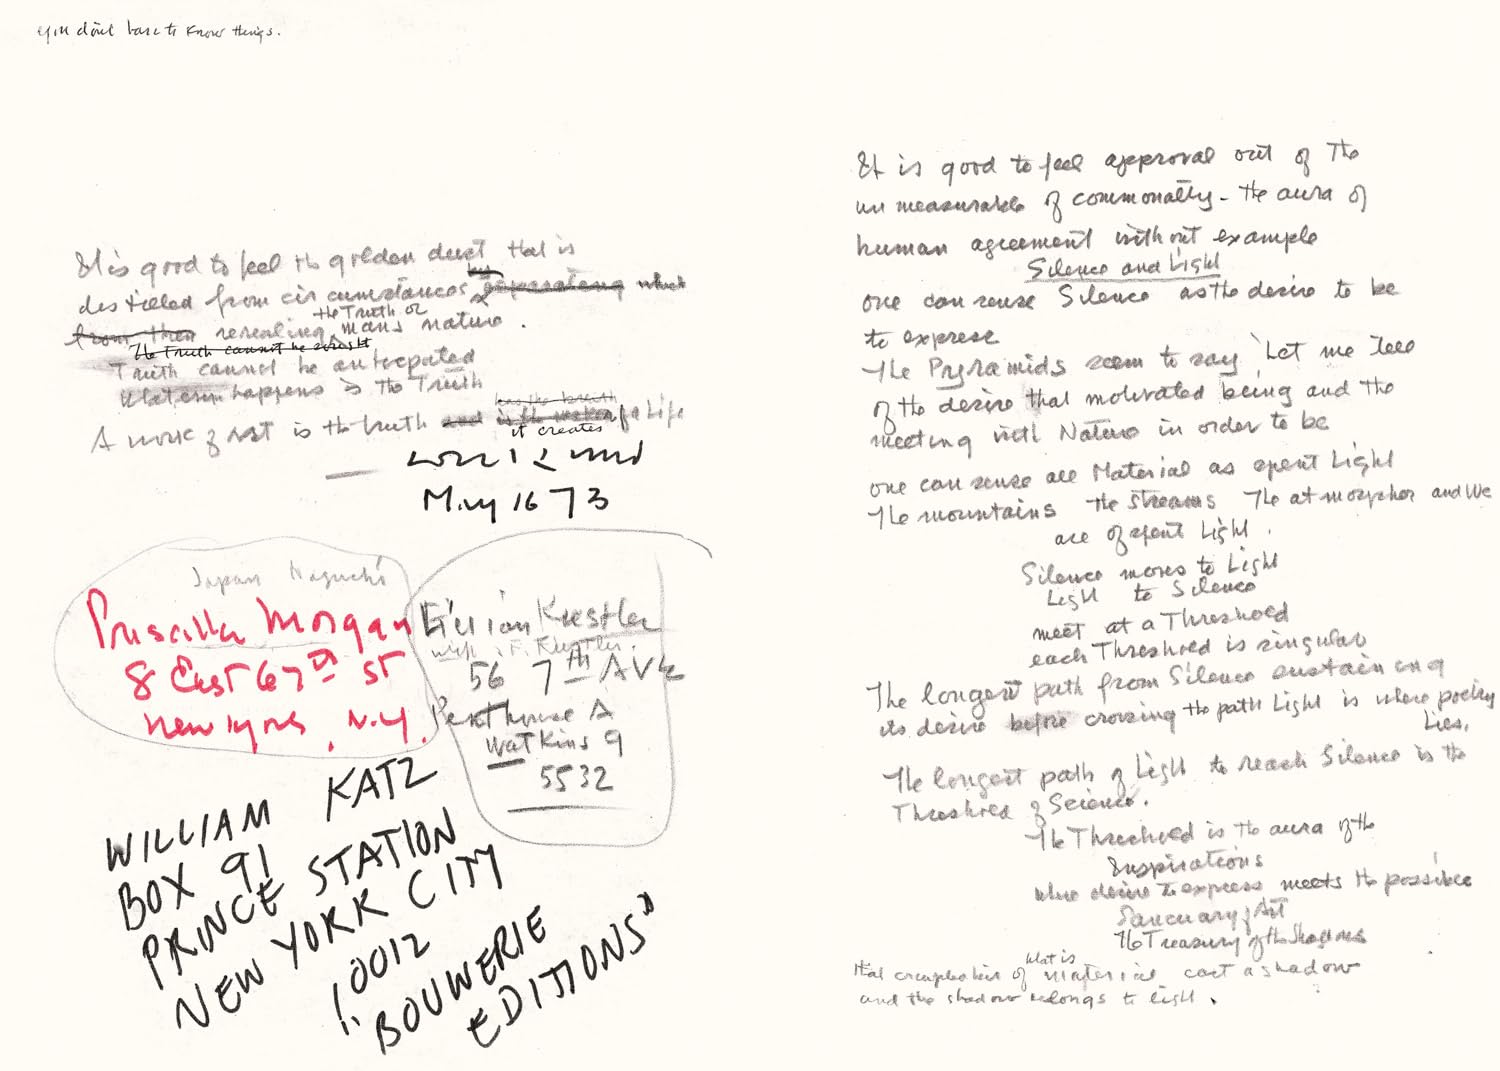 you don't have to know things.
It is good to feel the golden dust that is
distilled from circumstances by separating which
from then revealing the Truth of mans nature.
The Truth cannot be sought
Truth cannot be anticipated
Whatever happens is the Truth
A work of art is the truth and it creates of a Life
May 16 73
Japan Noguchi
Priscilla Morgan
8 East 67th ST
New York, N.Y.
Kuestler
56 7th AVE
Penthouse A
Watkins 9
5532
WILLIAM KATZ
BOX 91
PRINCE STATION
NEW YORK CITY
10012
"BOUWERIE
EDITIONS"
It is good to feel approval out of the
unmeasurable of commonalty - the aura of
human agreement without example
Silence and Light
one can sense Silence as the desire to be
to express
The Pyramids seem to say 'Let me tell
of the desire that motivated being and the
meeting with Nature in order to be
one can sense all Material as spent Light
The mountains the streams The atmospher and We
are of spent Light.
Silence moves to Light
Light to Silence
meet at a Threshold
each Threshold is singular
The longest path from Silence sustaining
its desire before crossing the path Light is where poetry
Lies.
The longest path of Light to reach Silence is the
Threshold of Science.
The Threshold is the aura of the
Inspirations
where desire to express meets the possible
Sanctuary of Art
The Treasury of the Shadows
that of what is material cast a shadow
and the shadow belongs to light.